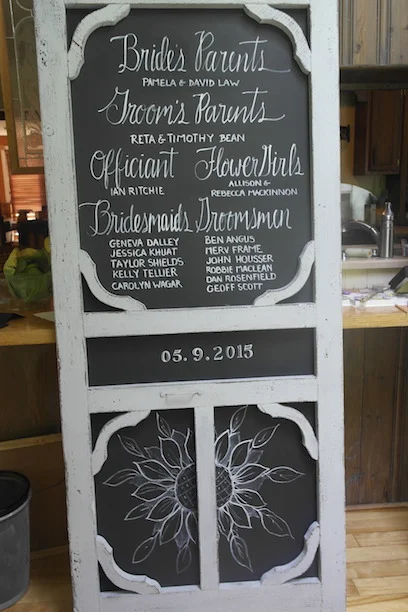 Bride's Parents
PAMELA & DAVID LAW
Groom's Parents
RETA & TIMOTHY BEAN
Officiant
IAN RITCHIE
Flower Girls
ALLISON &
REBECCA MACKINNON
Bridesmaids
GENEVA DALLEY
JESSICA KHUAT
TAYLOR SHIELDS
KELLY TELLIER
CAROLYN WAGAR
Groomsmen
BEN ANGUS
MERV FRAME
JOHN HOUSSER
ROBBIE MACLEAN
DAN ROSENFIELD
GEOFF SCOTT
05.9.2015